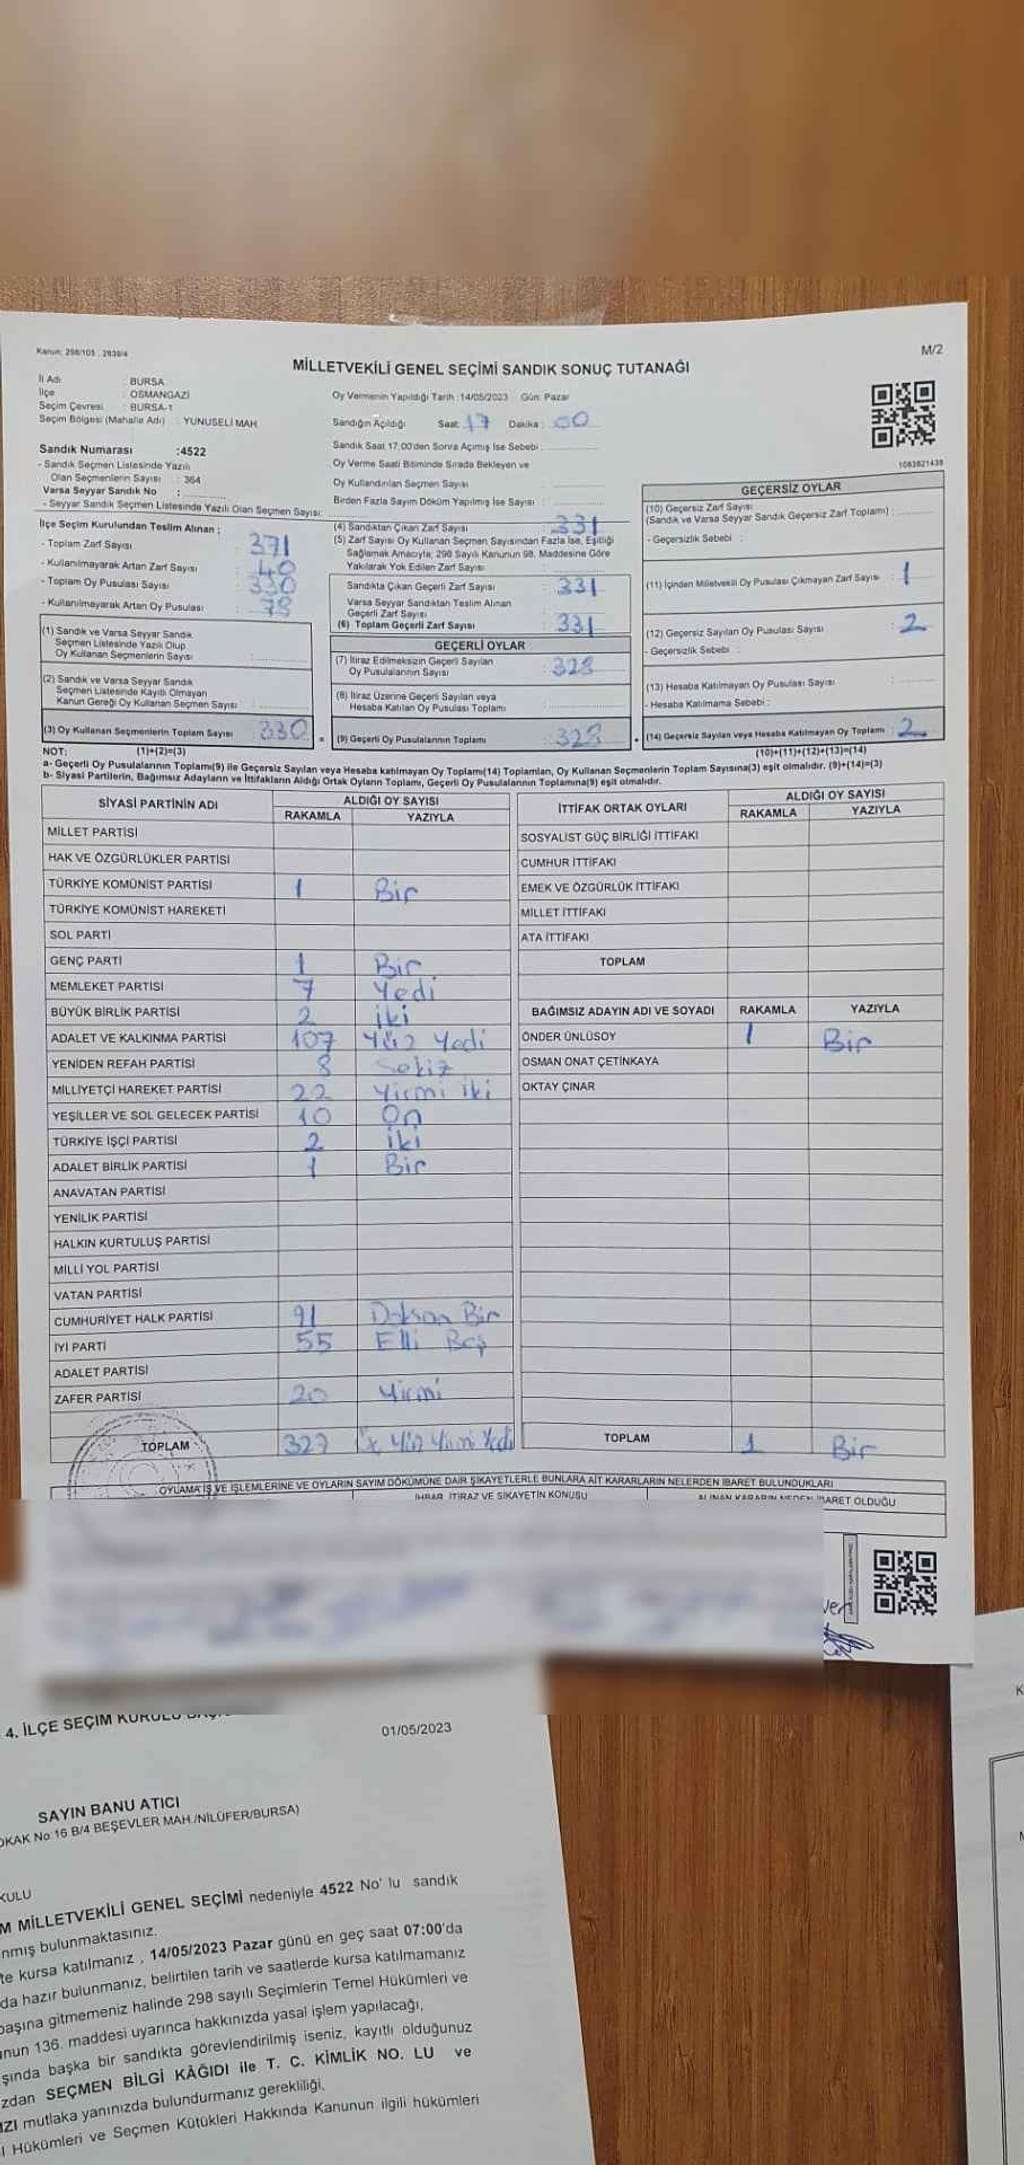 Kanun: 298/105 ; 2839/4
M/2
MİLLETVEKİLİ GENEL SEÇİMİ SANDIK SONUÇ TUTANAĞI
İl Adı : BURSA
İlçe : OSMANGAZİ
Seçim Çevresi : BURSA-1
Seçim Bölgesi (Mahalle Adı) : YUNUSELİ MAH.
Sandık Numarası :4522
- Sandık Seçmen Listesinde Yazılı
Olan Seçmenlerin Sayısı : 364
Varsa Seyyar Sandık No :
- Seyyar Sandık Seçmen Listesinde Yazılı Olan Seçmen Sayısı:
Oy Vermenin Yapıldığı Tarih :14/05/2023 Gün: Pazar
Sandığın Açıldığı Saat: 17 Dakika : 00
Sandık Saat 17.00'den Sonra Açımış İse Sebebi :
Oy Verme Saati Bitiminde Sırada Bekleyen ve
Oy Kullandırılan Seçmen Sayısı :
Birden Fazla Sayım Döküm Yapılmış İse Sayısı :
1083821438
İlçe Seçim Kurulundan Teslim Alınan ;
- Toplam Zarf Sayısı : 371
- Kullanılmayarak Artan Zarf Sayısı : 40
- Toplam Oy Pusulası Sayısı :
- Kullanılmayarak Artan Oy Pusulası :
(1) Sandık ve Varsa Seyyar Sandık
Seçmen Listesinde Yazılı Olup
Oy Kullanan Seçmenlerin Sayısı :
(2) Sandık ve Varsa Seyyar Sandık
Seçmen Listesinde Kayıtlı Olmayan
Kanun Gereği Oy Kullanan Seçmen Sayısı :
(3) Oy Kullanan Seçmenlerin Toplam Sayısı : 330
(4) Sandıktan Çıkan Zarf Sayısı : 331
(5) Zarf Sayısı Oy Kullanan Seçmen Sayısından Fazla İse, Eşitliği
Sağlamak Amacıyla; 298 Sayılı Kanunun 98. Maddesine Göre
Yakılarak Yok Edilen Zarf Sayısı :
Sandıkta Çıkan Geçerli Zarf Sayısı : 331
Varsa Seyyar Sandıktan Teslim Alınan
Geçerli Zarf Sayısı :
(6) Toplam Geçerli Zarf Sayısı : 331
GEÇERLİ OYLAR
(7) İtiraz Edilmeksizin Geçerli Sayılan
Oy Pusulalarının Sayısı : 328
(8) İtiraz Üzerine Geçerli Sayılan veya
Hesaba Katılan Oy Pusulası Toplamı :
(9) Geçerli Oy Pusulalarının Toplamı : 328
GEÇERSİZ OYLAR
(10) Geçersiz Zarf Sayısı
(Sandık ve Varsa Seyyar Sandık Geçersiz Zarf Toplamı) :
- Geçersizlik Sebebi :
(11) İçinden Milletvekili Oy Pusulası Çıkmayan Zarf Sayısı : 1
(12) Geçersiz Sayılan Oy Pusulası Sayısı : 2
- Geçersizlik Sebebi :
(13) Hesaba Katılmayan Oy Pusulası Sayısı :
- Hesaba Katılmama Sebebi :
(14) Geçersiz Sayılan veya Hesaba Katılmayan Oy Toplamı : 2
NOT: (1)+(2)=(3) (10)+(11)+(12)+(13)=(14)
a- Geçerli Oy Pusulalarının Toplamı(9) ile Geçersiz Sayılan veya Hesaba katılmayan Oy Toplamı(14) Toplamları, Oy Kullanan Seçmenlerin Toplam Sayısına(3) eşit olmalıdır. (9)+(14)=(3)
b- Siyasi Partilerin, Bağımsız Adayların ve İttifakların Aldığı Ortak Oyların Toplamı, Geçerli Oy Pusulalarının Toplamına(9) eşit olmalıdır.
SİYASİ PARTİNİN ADI ALDIĞI OY SAYISI
RAKAMLA YAZIYLA
MİLLET PARTİSİ
HAK VE ÖZGÜRLÜKLER PARTİSİ
TÜRKİYE KOMÜNİST PARTİSİ 1 Bir
TÜRKİYE KOMÜNİST HAREKETİ
SOL PARTİ
GENÇ PARTİ 1 Bir
MEMLEKET PARTİSİ 7 Yedi
BÜYÜK BİRLİK PARTİSİ 2 iki
ADALET VE KALKINMA PARTİSİ 107 Yüz Yedi
YENİDEN REFAH PARTİSİ 8 Sekiz
MİLLİYETÇİ HAREKET PARTİSİ 22 Yirmi iki
YEŞİLLER VE SOL GELECEK PARTİSİ 10 On
TÜRKİYE İŞÇİ PARTİSİ 2 iki
ADALET BİRLİK PARTİSİ 1 Bir
ANAVATAN PARTİSİ
YENİLİK PARTİSİ
HALKIN KURTULUŞ PARTİSİ
MİLLİ YOL PARTİSİ
VATAN PARTİSİ
CUMHURİYET HALK PARTİSİ 91 Doksan Bir
İYİ PARTİ 55 Elli Beş
ADALET PARTİSİ
ZAFER PARTİSİ 20 Yirmi
TOPLAM 327 Üç Yüz Yirmi Yedi
İTTİFAK ORTAK OYLARI ALDIĞI OY SAYISI
RAKAMLA YAZIYLA
SOSYALİST GÜÇ BİRLİĞİ İTTİFAKI
CUMHUR İTTİFAKI
EMEK VE ÖZGÜRLÜK İTTİFAKI
MİLLET İTTİFAKI
ATA İTTİFAKI
TOPLAM
BAĞIMSIZ ADAYIN ADI VE SOYADI RAKAMLA YAZIYLA
ÖNDER ÜNLÜSOY 1 Bir
OSMAN ONAT ÇETİNKAYA
OKTAY ÇINAR
TOPLAM 1 Bir
OYLAMA İŞ VE İŞLEMLERİNE VE OYLARIN SAYIM DÖKÜMÜNE DAİR ŞİKAYETLERLE BUNLARA AİT KARARLARIN NELERDEN İBARET BULUNDUKLARI
İHBAR, İTİRAZ VE ŞİKAYETİN KONUSU
ALINAN KARARIN NEDEN İBARET OLDUĞU
4. İLÇE SEÇİM KURULU
01/05/2023
SAYIN BANU ATICI
OKAK No:16 B/4 BEŞEVLER MAH./NİLÜFER/BURSA)
KULU
M MİLLETVEKİLİ GENEL SEÇİMİ nedeniyle 4522 No' lu sandık
nmış bulunmaktasınız.
te kursa katılmanız , 14/05/2023 Pazar günü en geç saat 07:00'da
da hazır bulunmanız, belirtilen tarih ve saatlerde kursa katılmamanız
başına gitmemeniz halinde 298 sayılı Seçimlerin Temel Hükümleri ve
nun 136. maddesi uyarınca hakkınızda yasal işlem yapılacağı,
şında başka bir sandıkta görevlendirilmiş iseniz, kayıtlı olduğunuz
zdan SEÇMEN BİLGİ KÂĞIDI ile T. C. KİMLİK NO. LU ve
IZI mutlaka yanınızda bulundurmanız gerekliliği,
l Hükümleri ve Seçmen Kütükleri Hakkında Kanunun ilgili hükümleri